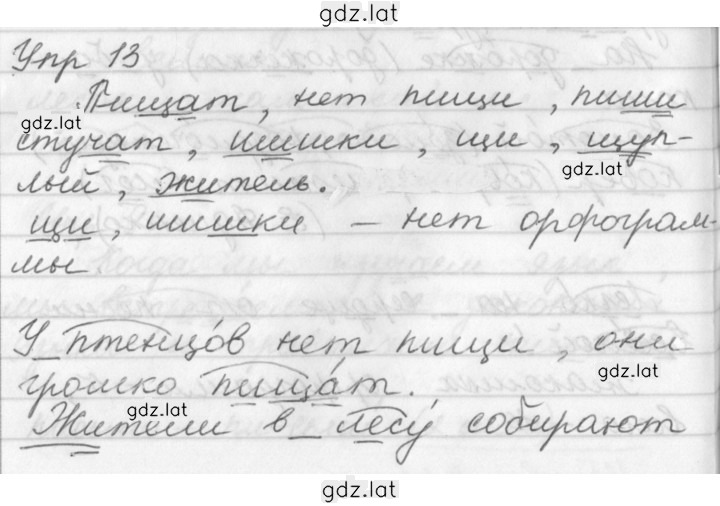 gdz.lat
Упр 13
Пищат, нет пищи, пиши
gdz.lat
стучат, шишки, щи, щуп-
gdz.lat
лый, житель.
щи, шишки – нет орфограм-
мы.
У птенцо́в нет пищи, они
громко пища́т.
gdz.lat
Жители в лесу́ собирают
gdz.lat